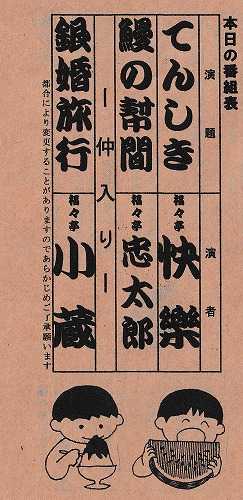 本日の番組表
演題
演者
てんしき
福々亭 快樂
鰻の幇間
福々亭 忠太郎
―仲入り―
銀婚旅行
福々亭 小蔵
都合により変更することがありますのであらかじめご了承願います